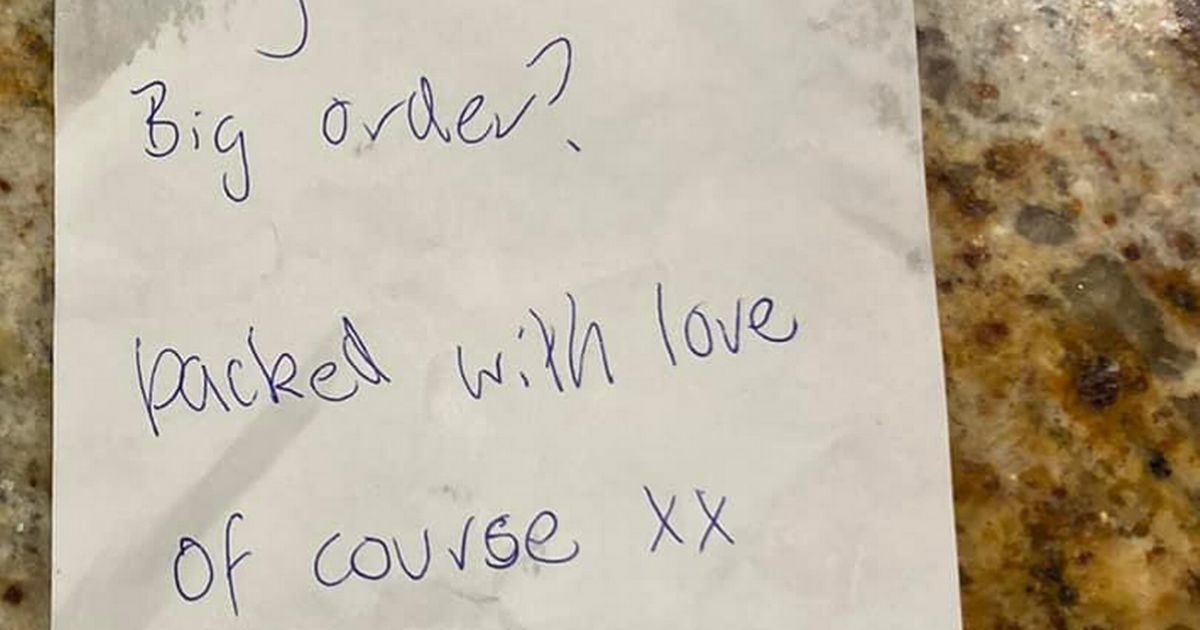 Big order?
packed with love
of course xx